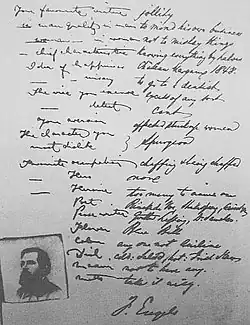 Your favourite virtue jollity
" quality in man to mind his own business
" " woman not to mislay things
" chief characteristic knowing everything by halves
Idea of happiness Château Margaux 1848
" " misery to go to a dentist
The vice you excuse excess of any sort
" " detest Cant
Your aversion affected stuck up women
The character you most dislike } Spurgeon
Favourite occupation chaffing & being chaffed
" Hero none
" Heroine too many to name one
Poet
Prose writer Goethe Lessing
Flower Blue Bell
Colour any one not Aniline
Dish cold: Salad, hot: Irish Stew
Maxim not to have any
Motto take it easy
F. Engels